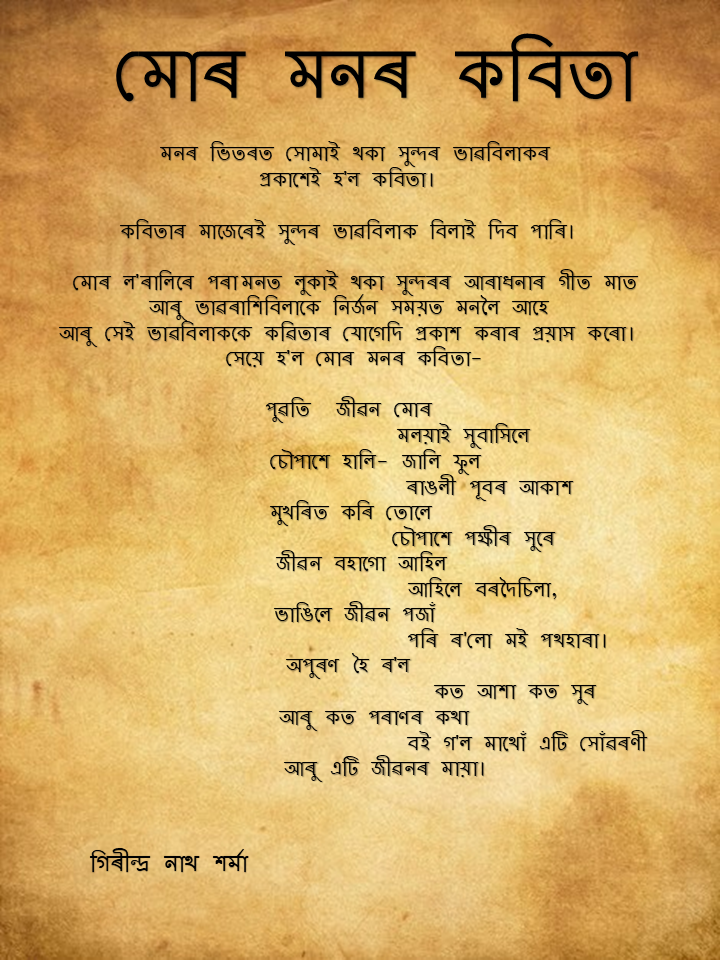 মোৰ মনৰ কবিতা
মনৰ ভিতৰত সোমাই থকা সুন্দৰ ভাৱবিলাকৰ
প্ৰকাশেই হ'ল কবিতা।
কবিতাৰ মাজেৰেই সুন্দৰ ভাৱবিলাক বিলাই দিব পাৰি।
মোৰ ল'ৰালিৰে পৰা মনত লুকাই থকা সুন্দৰৰ আৰাধনাৰ গীত মাত
আৰু ভাৱৰাশিবিলাকে নিৰ্জন সময়ত মনলৈ আহে
আৰু সেই ভাৱবিলাককে কৱিতাৰ যোগেদি প্ৰকাশ কৰাৰ প্ৰয়াস কৰো।
সেয়ে হ'ল মোৰ মনৰ কবিতা-
পুৱতি জীৱন মোৰ
মলয়াই সুবাসিলে
চৌপাশে হালি- জালি ফুল
ৰাঙলী পূবৰ আকাশ
মুখৰিত কৰি তোলে
চৌপাশে পক্ষীৰ সুৰে
জীৱন বহাগো আহিল
আহিলে বৰদৈচিলা,
ভাঙিলে জীৱন পজাঁ
পৰি ৰ'লো মই পথহাৰা।
অপুৰণ হৈ ৰ'ল
কত আশা কত সুৰ
আৰু কত পৰাণৰ কথা
বই গ'ল মাথোঁ এটি সোঁৱৰণী
আৰু এটি জীৱনৰ মায়া।
গিৰীন্দ্ৰ নাথ শৰ্মা